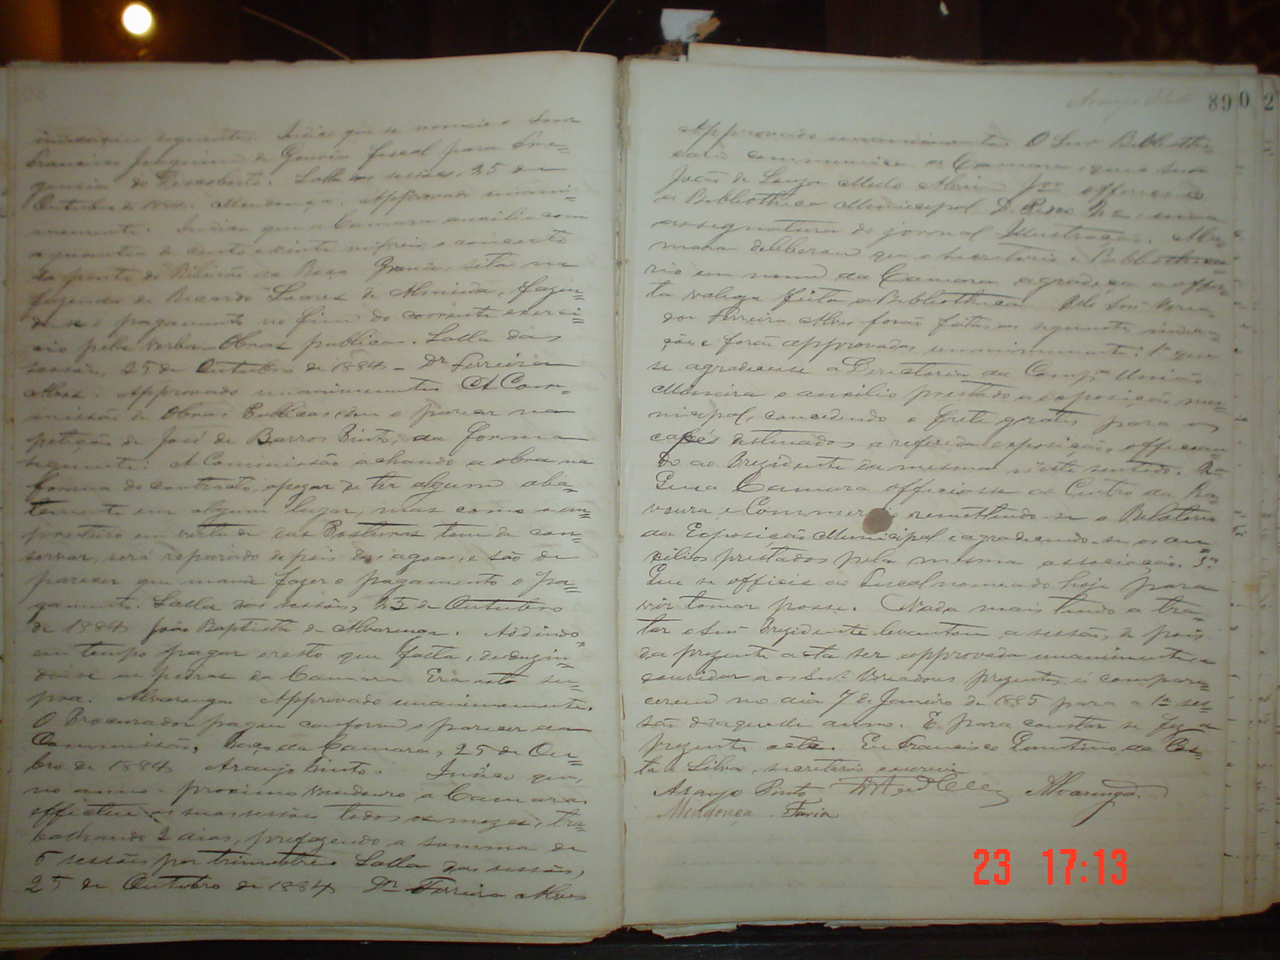 indicações seguintes: Indico que se nomeie o Snr
Francisco Joaquim de Gouvia fiscal para fre=
guesia do Descoberto. Salla das sessões, 25 de
Outubro de 1884. Mendonça. Approvado unani=
memente. Indico que a Camara auxilie com
a quantia de cento e vinte mil reis, o concerto
da ponte do Ribeirão da Roça Grande, sita na
fazenda de Ricardo Soares de Almeida, fazen=
do-se o pagamento no fim do corrente exerci=
cio pela verba - Obras publicas. Salla das
sessões, 25 de Outubro de 1884 - Dr Ferreira
Alves. Approvado unanimemente. A Com=
missão de Obras Publicas deu o parecer na
petição de José de Barros Pinto, da forma
seguinte: A Commissão achando a obra na
forma do contracto, apezar de ter algum aba=
temento em algum lugar, mas como o em=
preiteiro em virtude das Posturas tem de con=
servar, será reparado depois das agoas, e são de
parecer que mande fazer o pagamento o pa=
gamento. Salla das sessões, 25 de Outubro
de 1884 João Baptista de Alvarenga. Addindo
em tempo pagar o resto que falta, deduzin=
do-se as pedras da Camara Era ut su=
pra. Alvarenga Approvado unanimemente.
O Procurador pague conforme o parecer da
Commissão. Paço da Camara, 25 de Ou=
bro de 1884 Araujo Pinto. Indico que,
no anno proximo vindouro a Camara
effectue as suas sessões todos os mezes, tra=
balhando 2 dias, prefazendo a somma de
6 sessões por trimestre. Salla das sessões,
25 de Outubro de 1884 Dr Ferreira Alves
Araujo Pinto 89
Approvado unanimemente. O Snr Bibliothe=
cario communica a Camara, que o Snr
João de Souza Mello Alvim Jor offereceo
a Bibliotheca Municipal D. Pedro 2º, uma
assignatura do jornal Illustração. A Ca=
mara deliberou que o secretario e Bibliotheca=
rio em nome da Camara agradeça a offer=
ta valioza feita a Bibliotheca. Pelo Snr Verea=
dor Ferreira Alves forão feitas as seguintes indica=
ções e forão approvadas unanimemente: 1º que
se agradecesse a Directoria da Compª União
Mineira o auxilio prestado a exposição mu=
nicipal, concedendo o frete gratis para os
cafés destinados a referida exposição, offician=
do ao Prezidente da mesma n'este sentido. 2ª
Que a Camara officiasse ao Centro da La=
voura e Commercio remettendo-se o Relatorio
da Exposição Municipal e agradecendo-se os au=
xilios prestados pela mesma associação. 3ª
Que se officie ao Fiscal nomeado hoje para
vir tomar posse. Nada mais tendo a tra=
tar o Snr Prezidente levantou a sessão, depois
da prezente acta ser approvada unanimemente e
convidar aos Snrs Vereadores prezentes á compare=
cerem no dia 7 de Janeiro de 1885 para a 1ª ses=
são d'aquelle anno. E para constar se fez a
prezente acta. Eu Francisco Quintino da Cos=
ta e Silva, secretario escrevi.
Araujo Pinto Alvarenga.
Mendonça. Faria
23 17:13